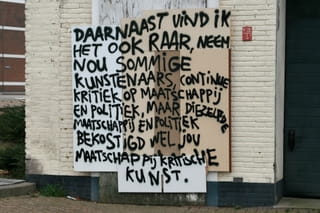 DAARNAAST VIND IK
HET OOK RAAR, NEEM
NOU SOMMIGE
KUNSTENAARS, CONTINUE
KRITIEK OP MAATSCHAPPIJ
EN POLITIEK, MAAR DIEZELFDE
MAATSCHAPPIJ EN POLITIEK
BEKOSTIGD WEL JOU
MAATSCHAPPIJ KRITISCHE
KUNST.